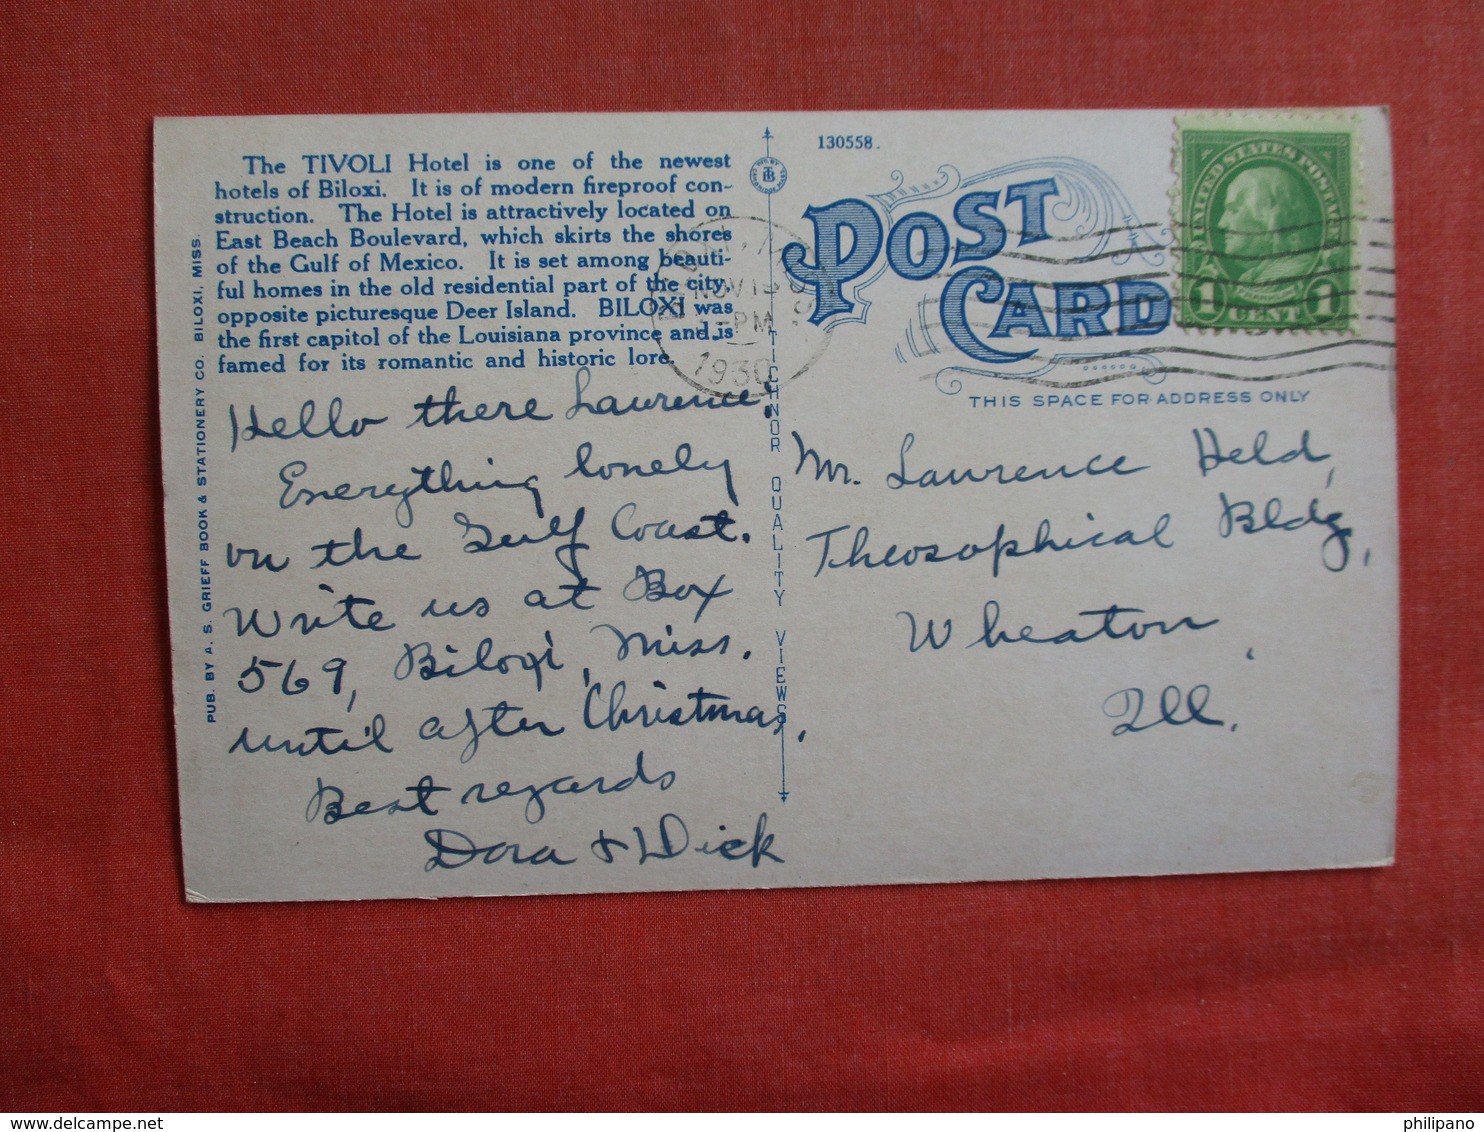 The TIVOLI Hotel is one of the newest
hotels of Biloxi. It is of modern fireproof con-
struction. The Hotel is attractively located on
East Beach Boulevard, which skirts the shores
of the Gulf of Mexico. It is set among beauti-
ful homes in the old residential part of the city,
opposite picturesque Deer Island. BILOXI was
the first capitol of the Louisiana province and is
famed for its romantic and historic lore.
PUB. BY A. S. GRIEFF BOOK & STATIONERY CO. BILOXI, MISS.
Hello there Laurence:
Everything lonely
on the Gulf Coast.
Write us at Box
569, Biloxi, Miss.
until after Christmas.
Best regards
Dora & Dick
TICHNOR QUALITY VIEWS
130558.
POST
CARD
THIS SPACE FOR ADDRESS ONLY
NOV 13
PM
1930
UNITED STATES POSTAGE
FRANKLIN
1 CENT 1
Mr. Laurence Held,
Theosophical Bldg,
Wheaton,
Ill.
philipano
www.delcampe.net